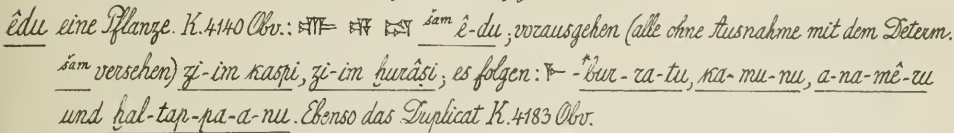 êdu eine Pflanze. K. 4140 Obv.: šam ê-du; vorausgehen (alle ohne Ausnahme mit dem Determ.
šam versehen) zi-im kaspi, zi-im ḫurâṣi; es folgen: bur-za-tu, ka-mu-nu, a-na-mê-ru
und ḫal-tap-pa-a-nu. Ebenso das Duplicat K. 4183 Obv.